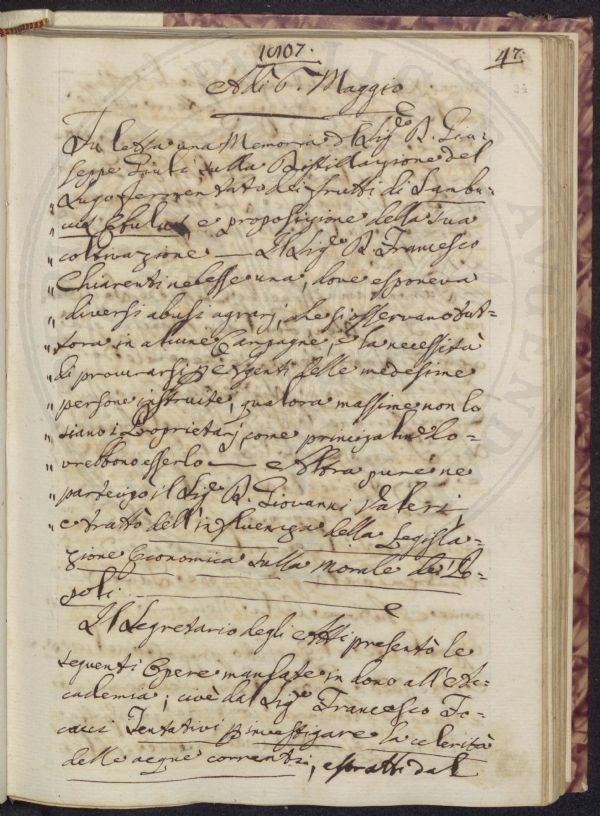 1807.
47.
Adì 6. Maggio
Fu letta una Memoria del Sigre D. Giu=
seppe Giuli sulla Distillazione del
„ Sugo fermentato dei frutti di Sambu=
„ cus Ebulus, e proposizione della sua
„ coltivazione — Il Sigre D. Francesco
„ Chiarenti ne lesse una, dove esponeva
„ diversi abusi agrarj, che si osservano tut=
„ tora in alcune Campagne, e la necessità
„ di procurarsi p Agenti delle medesime
„ persone istruite, qualora massime non lo
„ siano i Proprietarj come principalme lo
„ vrebbono esserlo — Altra pure ne
„ partecipò il Sigre D. Giovanni Valeri,
„ e trattò dell'influenza della Legisla=
zione Economica sulla Morale dei Po=
poli.
Il Segretario degli Atti presentò le
seguenti Opere mandate in dono all'Ac=
cademia; cioè dal Sigre Francesco Fo=
cacci Tentativi p investigare la celerità
delle acque correnti, estratti dal